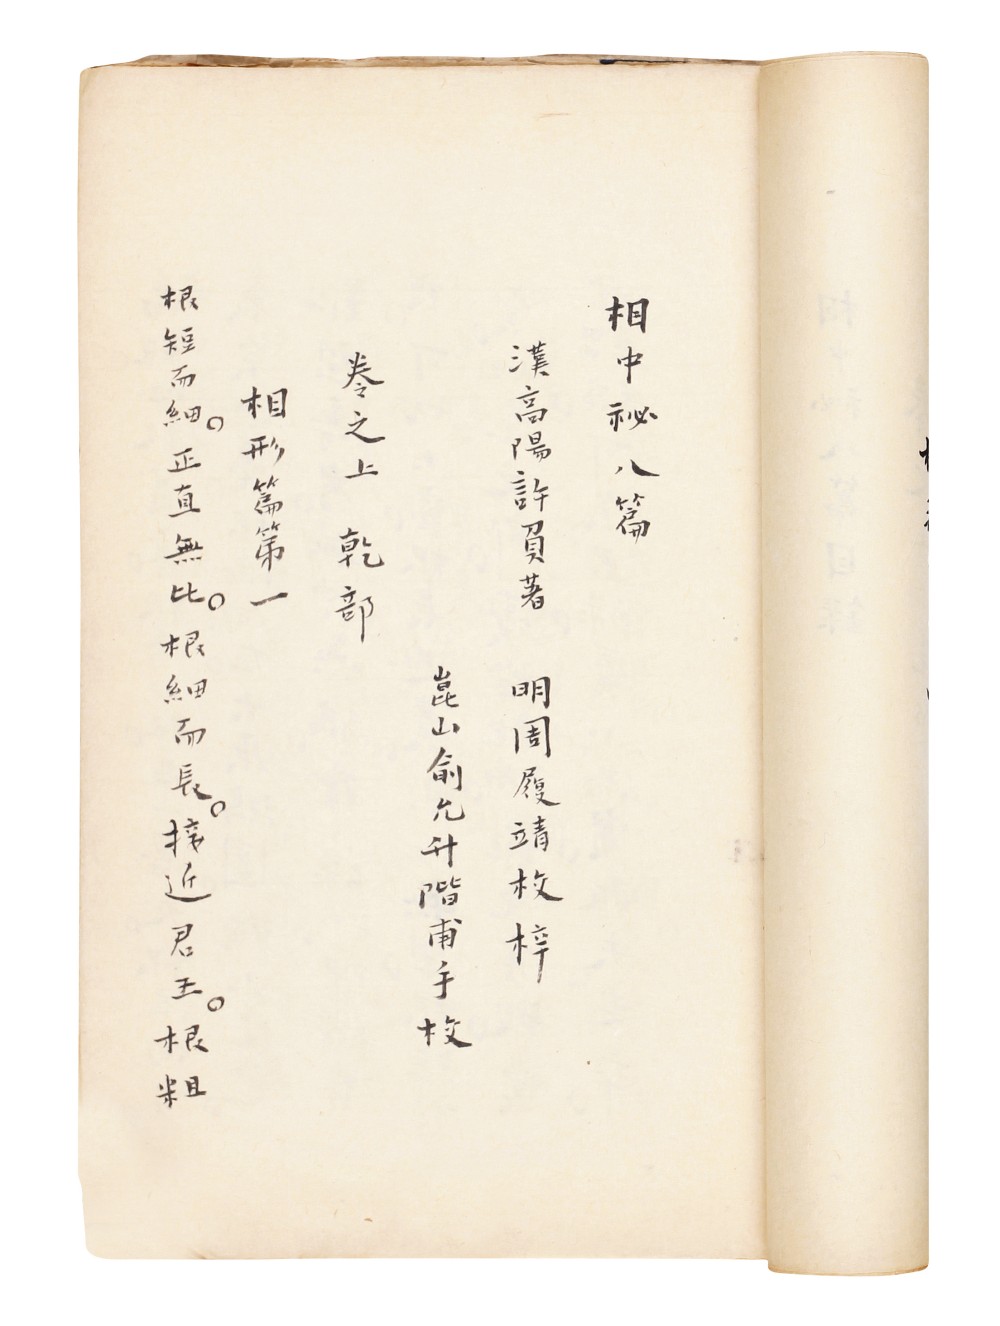 相中祕八篇
漢高陽許負著 明周履靖校梓
崑山俞允升階甫手校
卷之上 乾部
相形篇第一
根短而細。正直無比。根細而長。接近君王。根粗